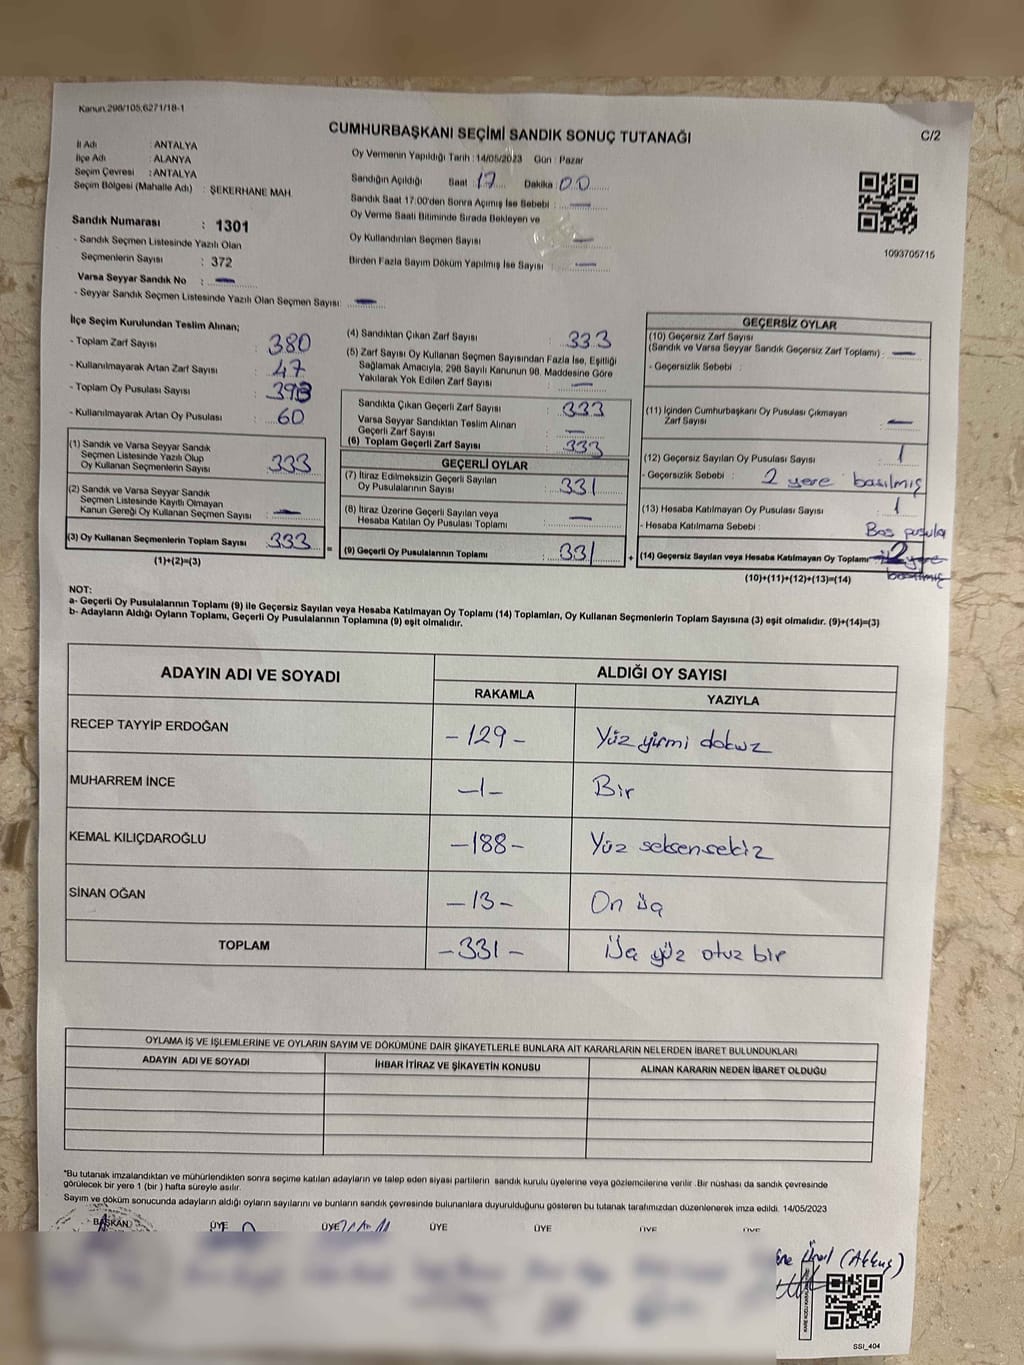 Kanun.298/105,6271/18-1
CUMHURBAŞKANI SEÇİMİ SANDIK SONUÇ TUTANAĞI
C/2
İl Adı : ANTALYA
İlçe Adı : ALANYA
Seçim Çevresi : ANTALYA
Seçim Bölgesi (Mahalle Adı) : ŞEKERHANE MAH.
Sandık Numarası : 1301
- Sandık Seçmen Listesinde Yazılı Olan
Seçmenlerin Sayısı : 372
Varsa Seyyar Sandık No : —
- Seyyar Sandık Seçmen Listesinde Yazılı Olan Seçmen Sayısı: —
Oy Vermenin Yapıldığı Tarih : 14/05/2023 Gün : Pazar
Sandığın Açıldığı Saat 17 Dakika 00
Sandık Saat 17:00'den Sonra Açımış İse Sebebi : —
Oy Verme Saati Bitiminde Sırada Bekleyen ve
Oy Kullandırılan Seçmen Sayısı —
Birden Fazla Sayım Döküm Yapılmış İse Sayısı : —
1093705715
İlçe Seçim Kurulundan Teslim Alınan;
- Toplam Zarf Sayısı : 380
- Kullanılmayarak Artan Zarf Sayısı : 47
- Toplam Oy Pusulası Sayısı : 393
- Kullanılmayarak Artan Oy Pusulası : 60
(1) Sandık ve Varsa Seyyar Sandık
Seçmen Listesinde Yazılı Olup
Oy Kullanan Seçmenlerin Sayısı : 333
(2) Sandık ve Varsa Seyyar Sandık
Seçmen Listesinde Kayıtlı Olmayan
Kanun Gereği Oy Kullanan Seçmen Sayısı : —
(3) Oy Kullanan Seçmenlerin Toplam Sayısı : 333
(1)+(2)=(3)
(4) Sandıktan Çıkan Zarf Sayısı : 333
(5) Zarf Sayısı Oy Kullanan Seçmen Sayısından Fazla İse, Eşitliği
Sağlamak Amacıyla; 298 Sayılı Kanunun 98. Maddesine Göre
Yakılarak Yok Edilen Zarf Sayısı : —
Sandıkta Çıkan Geçerli Zarf Sayısı : 333
Varsa Seyyar Sandıktan Teslim Alınan
Geçerli Zarf Sayısı : —
(6) Toplam Geçerli Zarf Sayısı : 333
GEÇERLİ OYLAR
(7) İtiraz Edilmeksizin Geçerli Sayılan
Oy Pusulalarının Sayısı : 331
(8) İtiraz Üzerine Geçerli Sayılan veya
Hesaba Katılan Oy Pusulası Toplamı : —
= (9) Geçerli Oy Pusulalarının Toplamı : 331
GEÇERSİZ OYLAR
(10) Geçersiz Zarf Sayısı
(Sandık ve Varsa Seyyar Sandık Geçersiz Zarf Toplamı) : —
- Geçersizlik Sebebi :
(11) İçinden Cumhurbaşkanı Oy Pusulası Çıkmayan
Zarf Sayısı : —
(12) Geçersiz Sayılan Oy Pusulası Sayısı : 1
- Geçersizlik Sebebi : 2 yere basılmış
(13) Hesaba Katılmayan Oy Pusulası Sayısı : 1
- Hesaba Katılmama Sebebi : Boş pusula
+ (14) Geçersiz Sayılan veya Hesaba Katılmayan Oy Toplamı : 2 yere
basılmış
(10)+(11)+(12)+(13)=(14)
NOT:
a- Geçerli Oy Pusulalarının Toplamı (9) ile Geçersiz Sayılan veya Hesaba Katılmayan Oy Toplamı (14) Toplamları, Oy Kullanan Seçmenlerin Toplam Sayısına (3) eşit olmalıdır. (9)+(14)=(3)
b- Adayların Aldığı Oyların Toplamı, Geçerli Oy Pusulalarının Toplamına (9) eşit olmalıdır.
ADAYIN ADI VE SOYADI
ALDIĞI OY SAYISI
RAKAMLA YAZIYLA
RECEP TAYYİP ERDOĞAN -129- Yüz yirmi dokuz
MUHARREM İNCE -1- Bir
KEMAL KILIÇDAROĞLU -188- Yüz seksensekiz
SİNAN OĞAN -13- On üç
TOPLAM -331- Üç yüz otuz bir
OYLAMA İŞ VE İŞLEMLERİNE VE OYLARIN SAYIM VE DÖKÜMÜNE DAİR ŞİKAYETLERLE BUNLARA AİT KARARLARIN NELERDEN İBARET BULUNDUKLARI
ADAYIN ADI VE SOYADI İHBAR İTİRAZ VE ŞİKAYETİN KONUSU ALINAN KARARIN NEDEN İBARET OLDUĞU
*Bu tutanak imzalandıktan ve mühürlendikten sonra seçime katılan adayların ve talep eden siyasi partilerin sandık kurulu üyelerine veya gözlemcilerine verilir. Bir nüshası da sandık çevresinde
görülecek bir yere 1 (bir ) hafta süreyle asılır.
Sayım ve döküm sonucunda adayların aldığı oyların sayılarını ve bunların sandık çevresinde bulunanlara duyurulduğunu gösteren bu tutanak tarafımızdan düzenlenerek imza edildi. 14/05/2023
BAŞKAN ÜYE ÜYE ÜYE ÜYE ÜYE ÜYE
SSİ_404